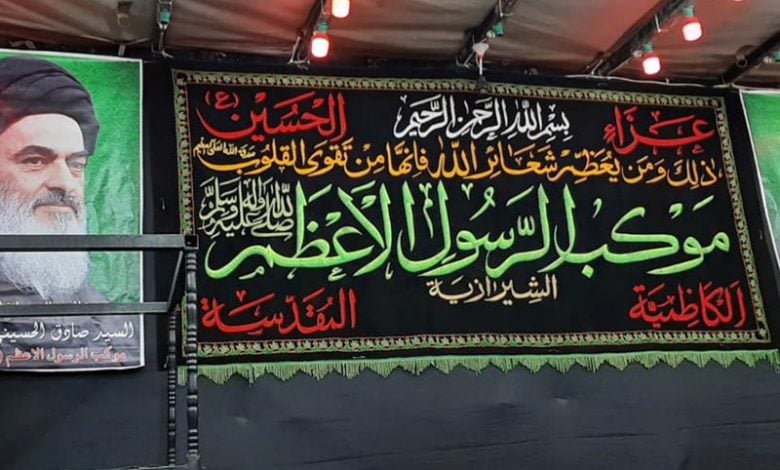 عزاء بسم الله الرحمن الرحيم الحسين (ع)
ذلك ومن يعظم شعائر الله فإنها من تقوى القلوب صدق الله العلي العظيم
موكب الرسول الاعظم صلى الله عليه وآله وسلم
الشيرازية
الكاظمية المقدسة
السيد صادق الحسيني
موكب الرسول الاعظم